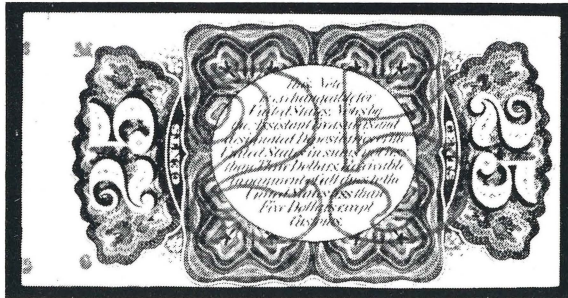 25
This Note
is exchangeable for
United States Notes by
the Assistant Treasurers and
designated Depositaries of the
United States in sums not less
than Three Dollars. Receivable
in payments of all dues to the
United States less than
Five Dollars except
Customs.
CENTS
CENTS
25
25
S
M
S
6